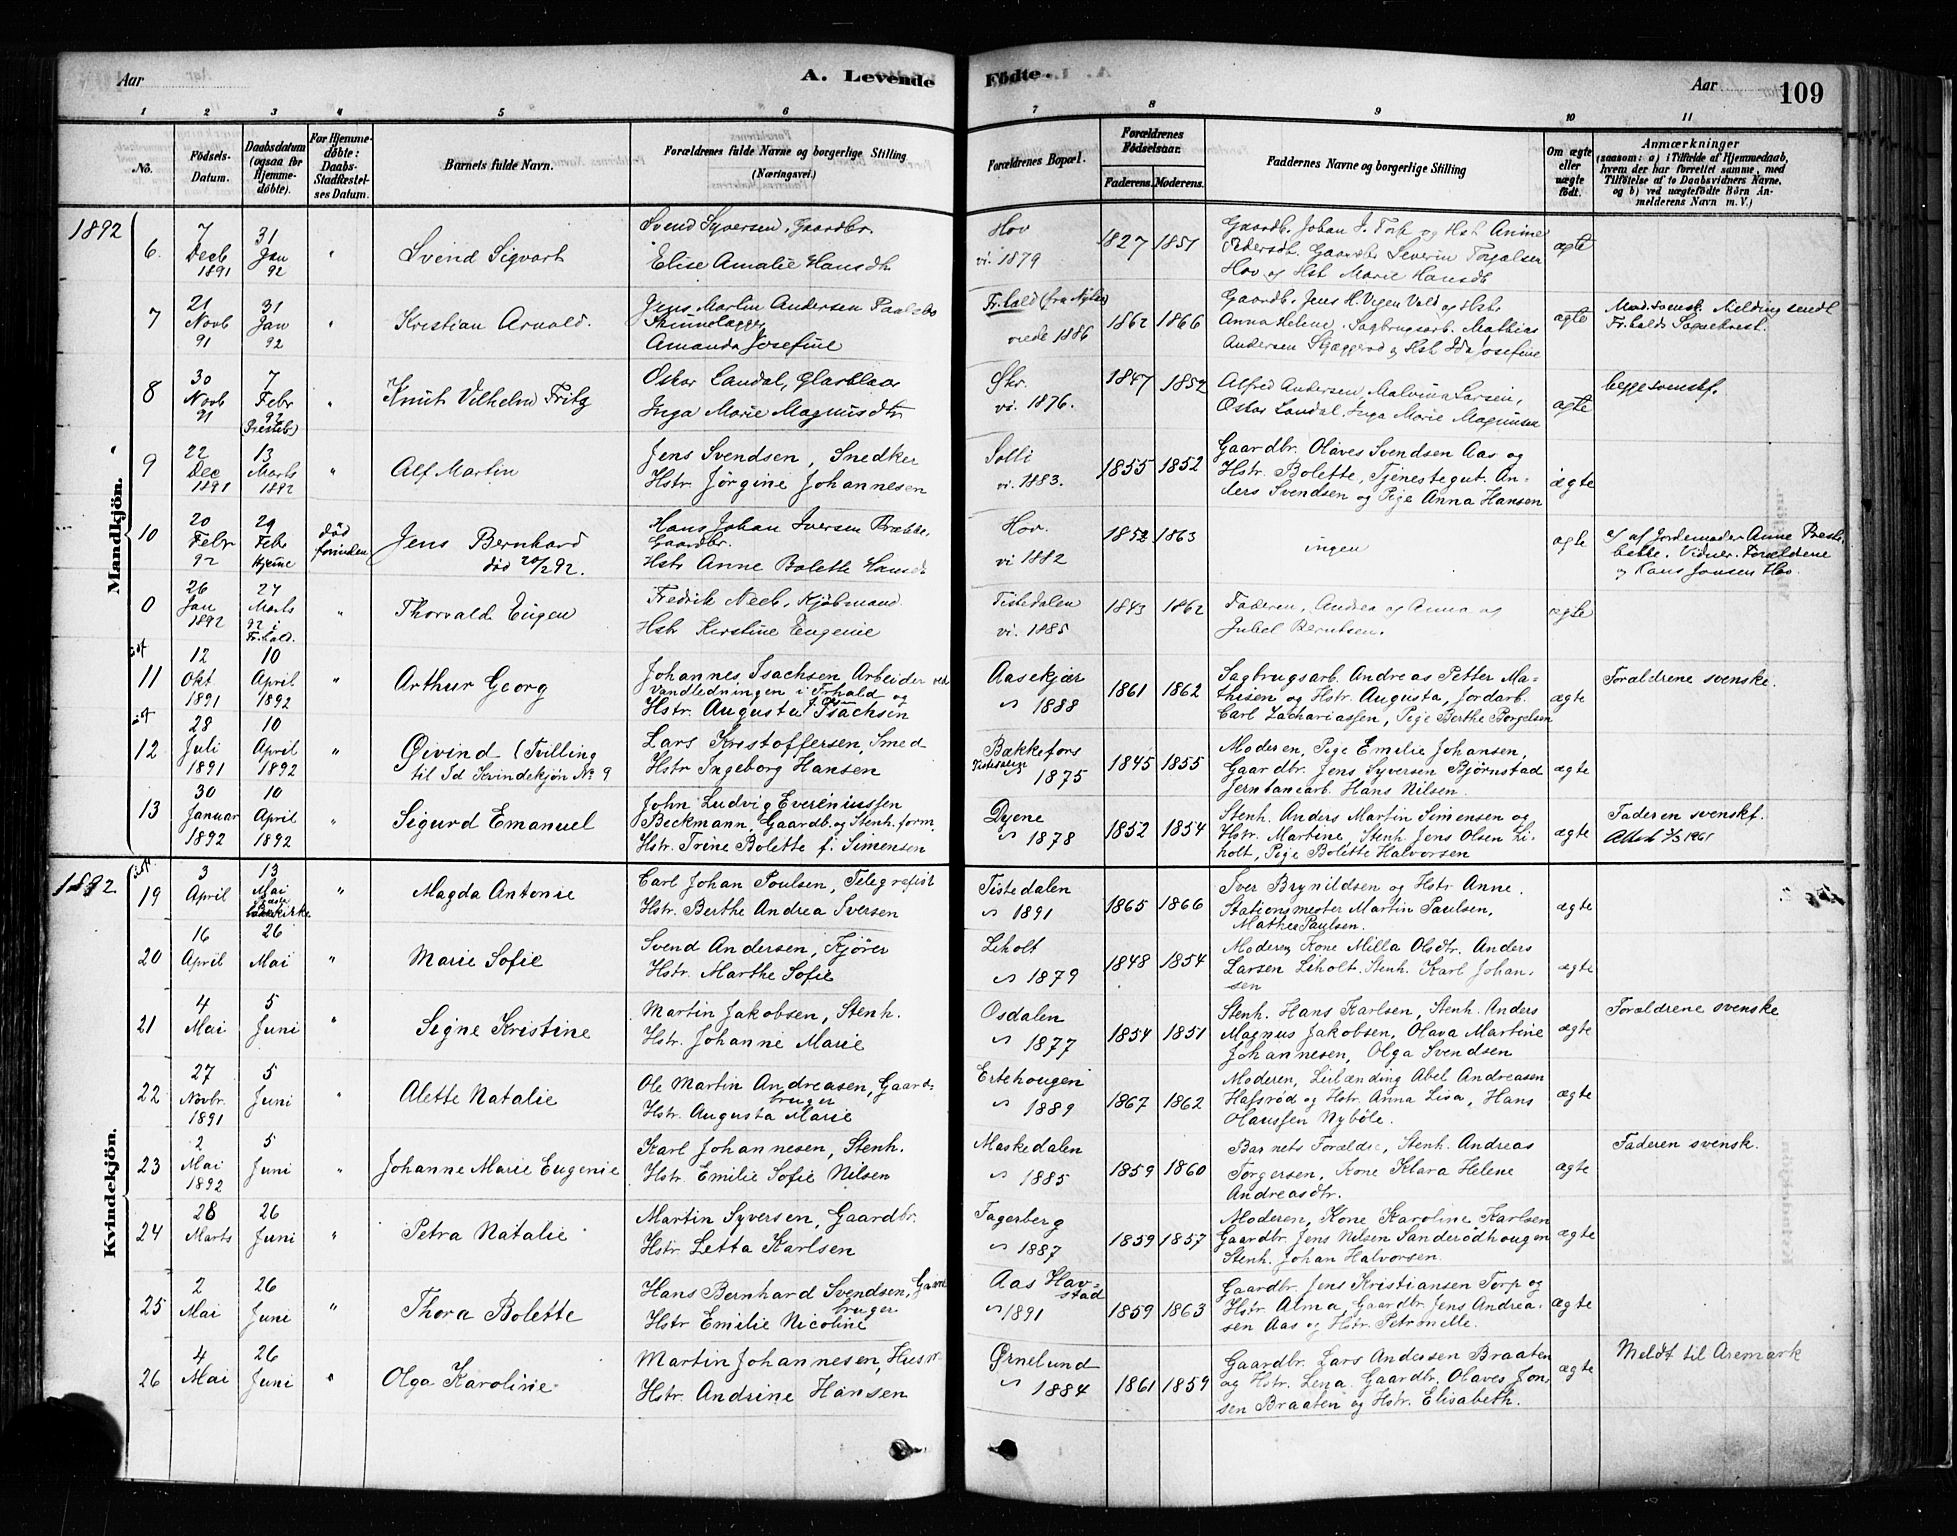 Aar A. Levende Fødte. Aar 109
1 2 3 4 5 6 7 8 9 10 11
No. Fødsels-Datum. Daabsdatum (ogsaa for Hjemmedøbte). For Hjemmedøbte: Daabs-Stadfæstelses Datum. Barnets fulde Navn. Forældrenes fulde Navne og borgerlige Stilling (Næringsvei.) Forældrenes Bopæl. Forældrenes Fødselsaar. Faderens. Moderens. Faddernes Navne og borgerlige Stilling Om ægte eller uægte født. Anmærkninger (saasom: a) i Tilfælde af Hjemmedaab, hvem der har forrettet samme, med Tilføielse af to Daabsvidners Navne, og b) ved uægtefødte Børn Anmelderens Navn m. V.)
Mandkjön.
1892
6. 7 Decb 1891 31 Jan 92 " Svend Sigvart
Svend Syversen, Gaardbr.
Elise Amalie Hansdtr
Hov vi. 1879 1827 1851
Gaardb. Johan J. Torp og Hst Anine
Pedersdt. Gaardbr Severin Torgalsen
Hov og Hst Marie Hansdt
ægte
7 21 Novb 91 31 Jan 92 " Kristian Arnold.
Jens Martin Andersen
Amanda Josefine
Fr.hald 1886 1862 1866
Gaardb. Jens H. Vold og Hstr
Anna Helene, Sagbrugsarb. Mathias
Andersen Skjeggerød og Hst Ida Josefine
ægte
Mod. svensk. Melding sendt
Fr.halds Sognekrest.
8 30 Novb 91 7 Febr 92 (Presteb) " Knut Vilhelm Fritz
Oskar Landal, Glarblaas
Inga Marie Magnusdtr
vi. 1876. 1847 1852
Alfred Andersen, Malvina Larsen,
Oskar Landal, Inga Marie Magnusen
ægte
begge svenskf.
9 22 Dec 1891 13 Marts 1892 " Alf Martin
Jens Svendsen, Snedker
Hstr. Jörgine Johannesen
Solli vi. 1883. 1855 1852
Gaardbr. Olaves Svendsen Aas og
Hstr. Bolette, Tjenestegut. An-
ders Svendsen og Pige Anna Hansen
ægte
10 20 Febr 92 29 Febr Hjeme død forinden Jens Bernhard
død 20/2 92.
Hans Johan Iversen Brække,
Gaardbr.
Hstr Anne Bolette Hansdt
Hov. vi 1882 1852 1863
ingen
ægte
af Jordemoder Anne Prest-
bakke. Vidner. Forældrene
og Hans Jensen Hov.
0 26 Jan 1892 27 Marts 92 i Fr.hald. " Thorvald Eugen
Fredrik Neeb, Kjøbmand
Hstr Kirstine Eugenie
Tistedalen vi. 1885 1843 1862
Faderen, Andrea og Anna og
Juhel Berntsen.
ægte
11 12 Okt 1891 10 April 1892 " Arthur Georg
Johannes Isachsen Arbeider ved
Vandledningen i Frhald og
Hstr. Augusta Isachsen
Aasekjær 1888 1861 1862
Sagbrugsarb. Andreas Petter Ma-
thisen og Hstr. Augusta, Jordarb.
Carl Zachariassen, Pige Berthe Borgelsen
ægte
Forældrene svenske.
12 28 Juli 1891 10 April 1892 " Øivind (Tvilling
til Id Kvindekjøn No 9
Lars Kristoffersen, Smed
Hstr Ingeborg Hansen
Bækkefors
Tistedalen 1875 1845 1855
Moderen, Pige Emilie Johansen,
Gaardbr. Jens Syversen Bjørnstad
Jernbanearb. Hans Nilsen.
ægte
13 30 Januar 1892 10 April 1892 " Sigurd Emanuel
John Ludvig Evereniussen
Beckmann, Gaardb. og Stenh.form.
Hstr. Trine Bolette f. Simensen
Dyene 1878 1852 1854
Stenh. Anders Martin Simensen og
Hstr. Martine, Stenh. Jens Olsen Li-
holt, Pige Bolette Halvorsen
ægte
Faderen svenskf.
Kvindekjön.
1892
19 3 April 13 Mai " Magda Antonie
Carl Johan Poulsen, Telegrafist
Hstr. Berthe Andrea Iversen
Tistedalen 1891 1865 1866
Iver Brynildsen og Hstr Anne.
Stationsmester Martin Paulsen,
Mathea Paulsen.
ægte
20 16 April 26 Mai " Marie Sofie
Svend Andersen, Kjører
Hstr. Marthe Sofie
Liholt 1879 1848 1854
Moderen, Kone Milla Olsdtr. Anders
Larsen Liholt. Stenh. Karl Johan-
sen
ægte
21 4 Mai 5 Juni " Signe Kristine
Martin Jakobsen, Stenh.
Hstr. Johanne Marie
Osdalen 1877 1854 1851
Stenh. Hans Karlsen, Stenh. Anders
Magnus Jakobsen, Olava Martine
Johannesen, Olga Svendsen
ægte
Forældrene svenske
22 27 Novbr. 1891 5 Juni " Alette Natalie
Ole Martin Andreasen, Gaard-
bruger
Hstr. Augusta Marie
Ertehougen 1889 1867 1862
Moderen, Leilænding Abel Andreasen
Hafsrød og Hstr. Anna Lisa, Hans
Olaussen Nybøle.
ægte
23 2 Mai 1892 5 Juni " Johanne Marie Eugenie
Karl Johannesen, Stenh.
Hstr. Emilie Sofie Nilsen
Maskedalen 1885 1859 1860
Barnets Forældre, Stenh. Andreas
Torgersen, Kone Klara Helene
Andreasdtr.
ægte
Faderen svensk.
24 28 Marts 26 Juni " Petra Natalie
Martin Syversen, Gaardbr.
Hstr. Letta Karlsen
Fagerberg 1887 1859 1857
Moderen, Kone Karoline Karlsen
Gaardbr. Jens Nilsen Sanderødhougen
Stenh. Johan Halvorsen.
ægte
25 2 Mai 26 Juni " Thora Bolette
Hans Bernhard Svendsen, Gaard-
bruger
Hstr Emilie Nicoline
Aas Hav-
stad 1891 1859 1863
Gaardbr. Jens Kristiansen Torp og
Hstr. Alma, Gaardbr. Jens Andrea-
sen Aas og Hstr. Petronelle.
ægte
26 4 Mai 26 Juni " Olga Karoline
Martin Johannesen, Husm.
Hstr. Andrine Hansen
Ørnelund 1884 1861 1859
Gaardbr. Lars Andersen Braaten
og Hstr. Lena. Gaardbr. Olaves Jon-
sen Braaten og Hstr. Elisabeth.
ægte
Meldt til Aremark